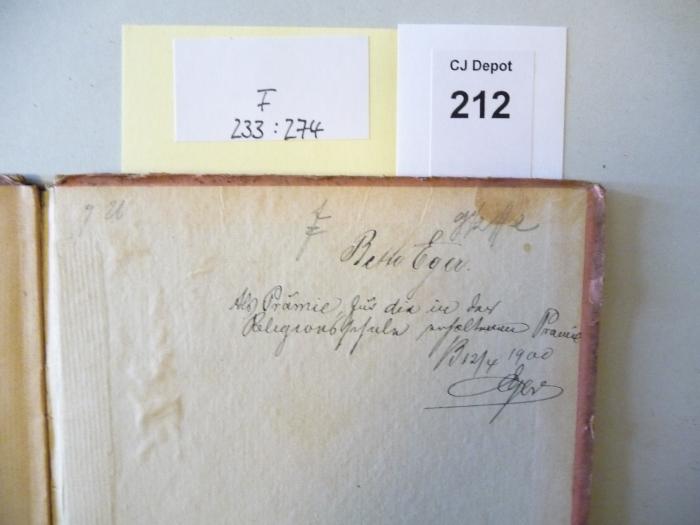 CJ Depot
212
F
233:274
F
Betto Eger.
Als Prämie für die in der
Religionsschule erhaltenen Prämie
B 12/4 1900
Eger